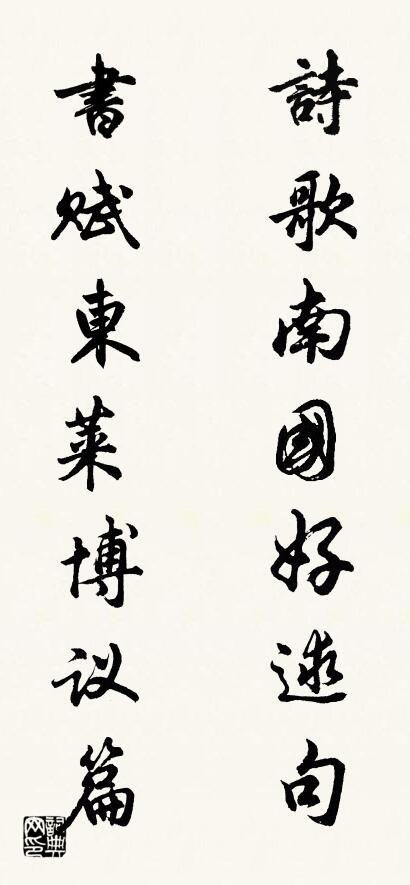 詩歌南國好逑句
書賦東萊博议篇